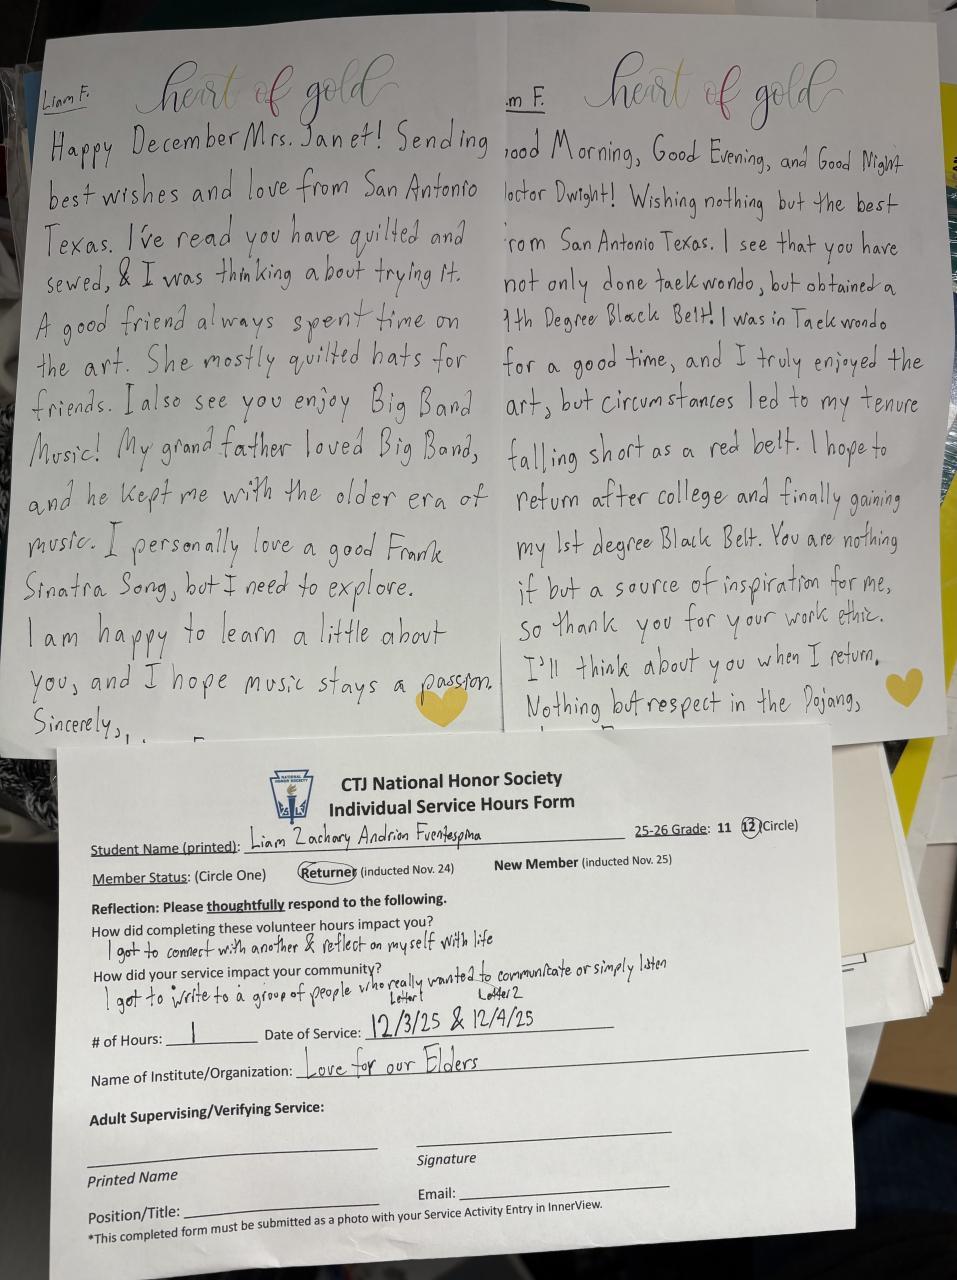 Liam F.
heart of gold
Happy December Mrs. Janet! Sending
best wishes and love from San Antonio
Texas. I've read you have quilted and
sewed, & I was thinking about trying it.
A good friend always spent time on
the art. She mostly quilted hats for
friends. I also see you enjoy Big Band
Music! My grandfather loved Big Band,
and he kept me with the older era of
music. I personally love a good Frank
Sinatra Song, but I need to explore.
I am happy to learn a little about
you, and I hope music stays a passion.
Sincerely,
m F.
heart of gold
ood Morning, Good Evening, and Good Night
octor Dwight! Wishing nothing but the best
rom San Antonio Texas. I see that you have
not only done taekwondo, but obtained a
9th Degree Black Belt! I was in Taekwondo
for a good time, and I truly enjoyed the
art, but circumstances led to my tenure
falling short as a red belt. I hope to
return after college and finally gaining
my 1st degree Black Belt. You are nothing
if but a source of inspiration for me,
so thank you for your work ethic.
I'll think about you when I return.
Nothing but respect in the Dojang,
CTJ National Honor Society
Individual Service Hours Form
Student Name (printed): Liam Zachary Andrion Fuentespina
25-26 Grade: 11 12 (Circle)
Member Status: (Circle One) Returner (inducted Nov. 24) New Member (inducted Nov. 25)
Reflection: Please thoughtfully respond to the following.
How did completing these volunteer hours impact you?
I got to connect with another & reflect on myself with life
How did your service impact your community?
I got to write to a group of people who really wanted to communicate or simply listen
Letter 1 Letter 2
# of Hours: 1 Date of Service: 12/3/25 & 12/4/25
Name of Institute/Organization: Love for our Elders
Adult Supervising/Verifying Service:
Printed Name
Signature
Position/Title:
Email:
*This completed form must be submitted as a photo with your Service Activity Entry in InnerView.